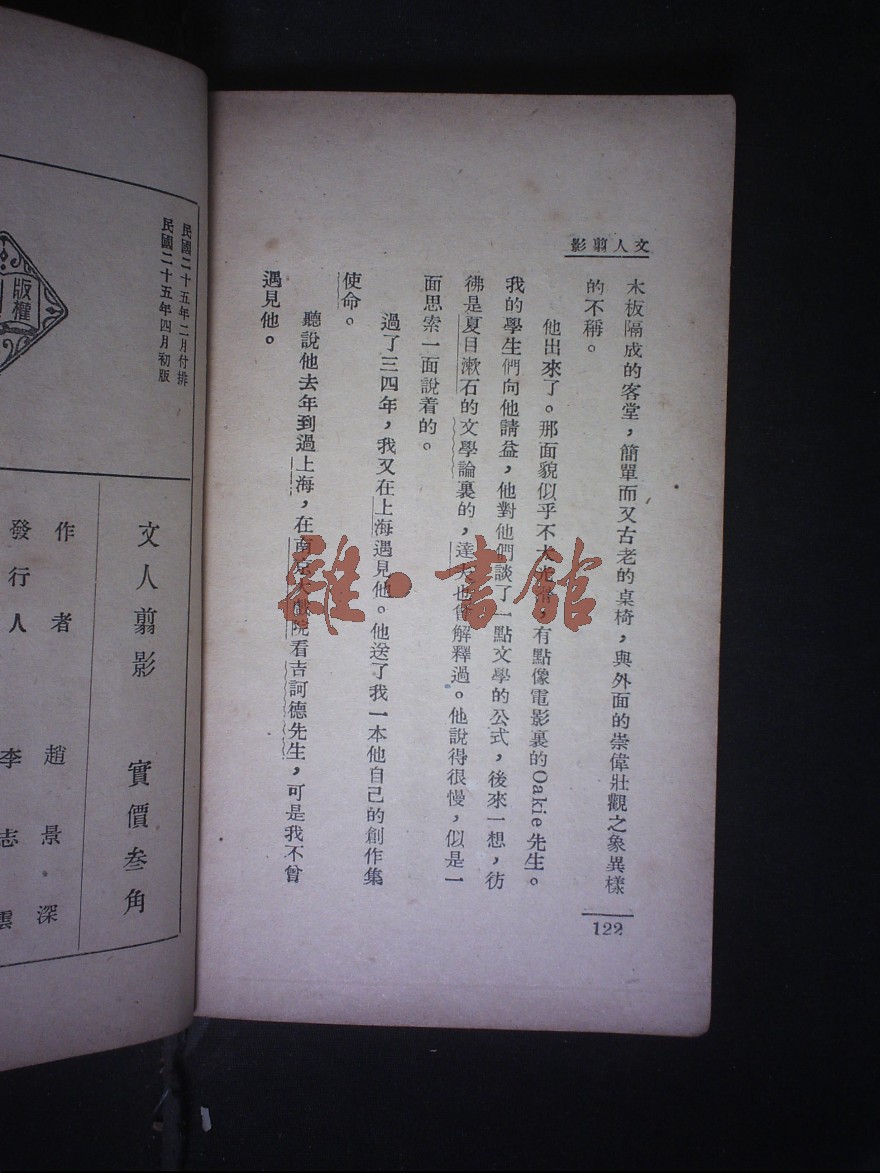 文人翦影
木板隔成的客堂，簡單而又古老的桌椅，與外面的崇偉壯觀之象異樣
的不稱。
他出來了。那面貌似乎不大光滑，有點像電影裏的Oakie先生。
我的學生們向他請益，他對他們談了一點文學的公式，後來一想，彷
彿是夏目漱石的文學論裏的，達夫也曾解釋過。他說得很慢，似是一
面思索一面說着的。
過了三四年，我又在上海遇見他。他送了我一本他自己的創作集
使命。
聽說他去年到過上海，在南京大戲院看吉訶德先生，可是我不曾
遇見他。
122
雜·書館
民國二十五年二月付排
民國二十五年四月初版
版權
文人翦影 實價叁角
作者 趙景深
發行人 李志雲